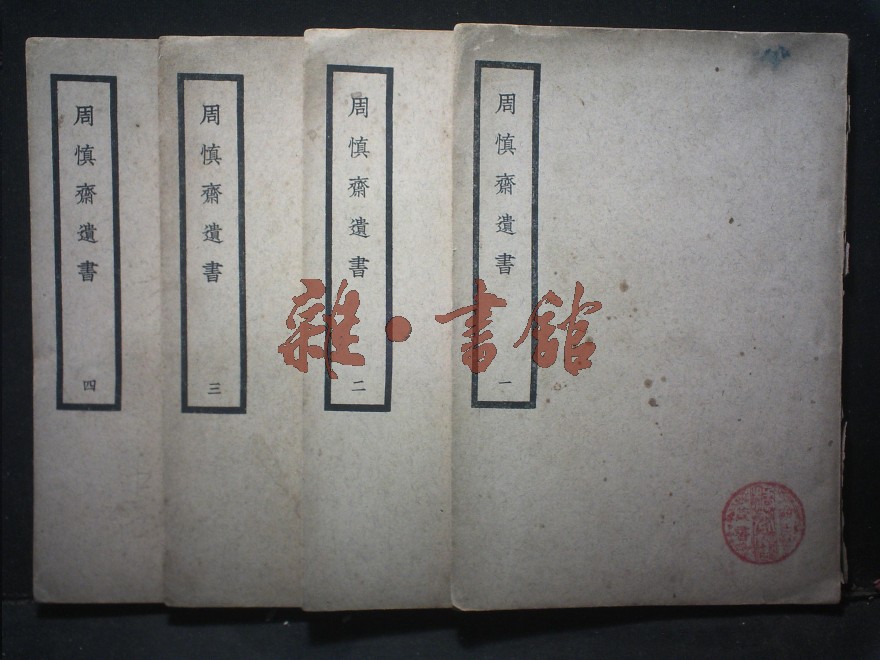 周慎齋遺書
一
周慎齋遺書
二
周慎齋遺書
三
周慎齋遺書
四
雜·書館